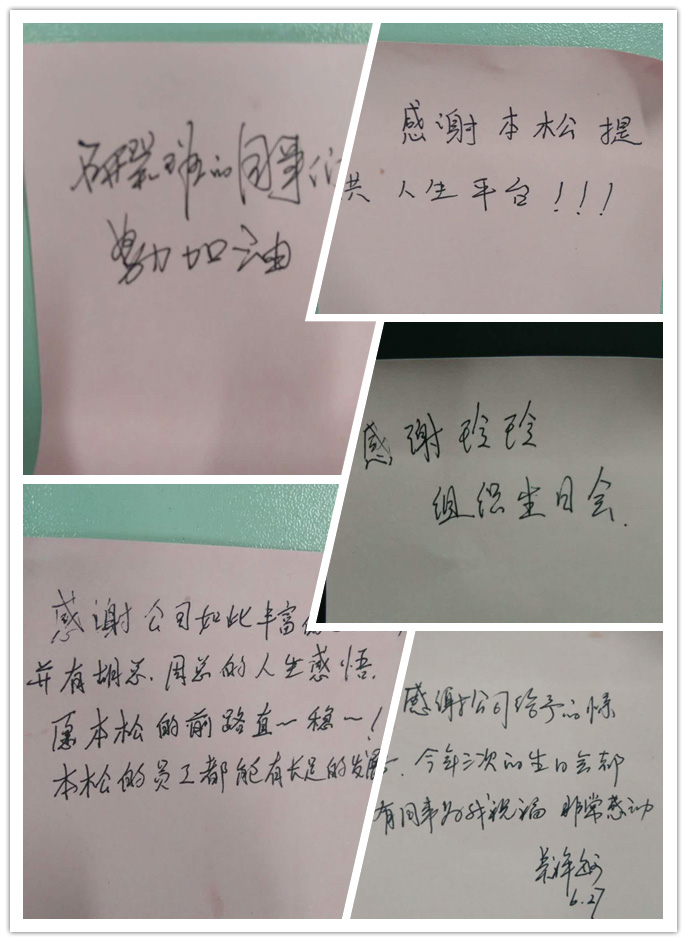 研发班的同事们
努力加油
感谢本松提
共人生平台!!!
感谢玲玲
组织生日会.
感谢公司如此丰富
并有胡总.周总的人生感悟.
愿本松的前路直一稳一!
本松的员工都能有长足的发展
感谢公司给予的惊
今年三次的生日会都
有同事为我祝福 非常感动
6.27